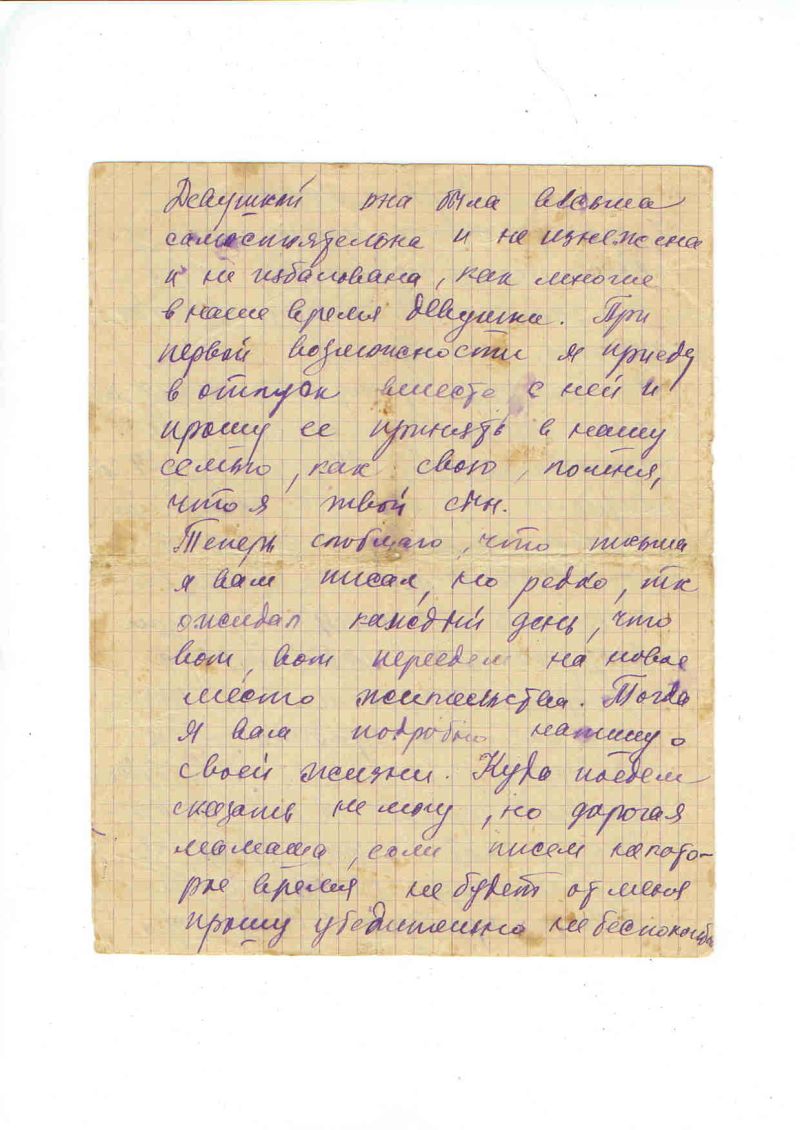 Девушкой она была весьма
самостоятельна и не изнежена
и не избалована, как многие
в наше время девушки. При
первой возможности я приеду
в отпуск вместе с ней и
прошу ее принять в нашу
семью, как свою, помня,
что я твой сын.
Теперь сообщаю, что письма
я вам писал, но редко, тк
ожидал каждый день, что
вот, вот переедем на новое
место жительства. Тогда
я вам подробно напишу о
своей жизни. Куда поедем
сказать не могу, но дорогая
мамаша, если писем некото-
рое время не будет от меня
прошу убедительно не беспокоиться